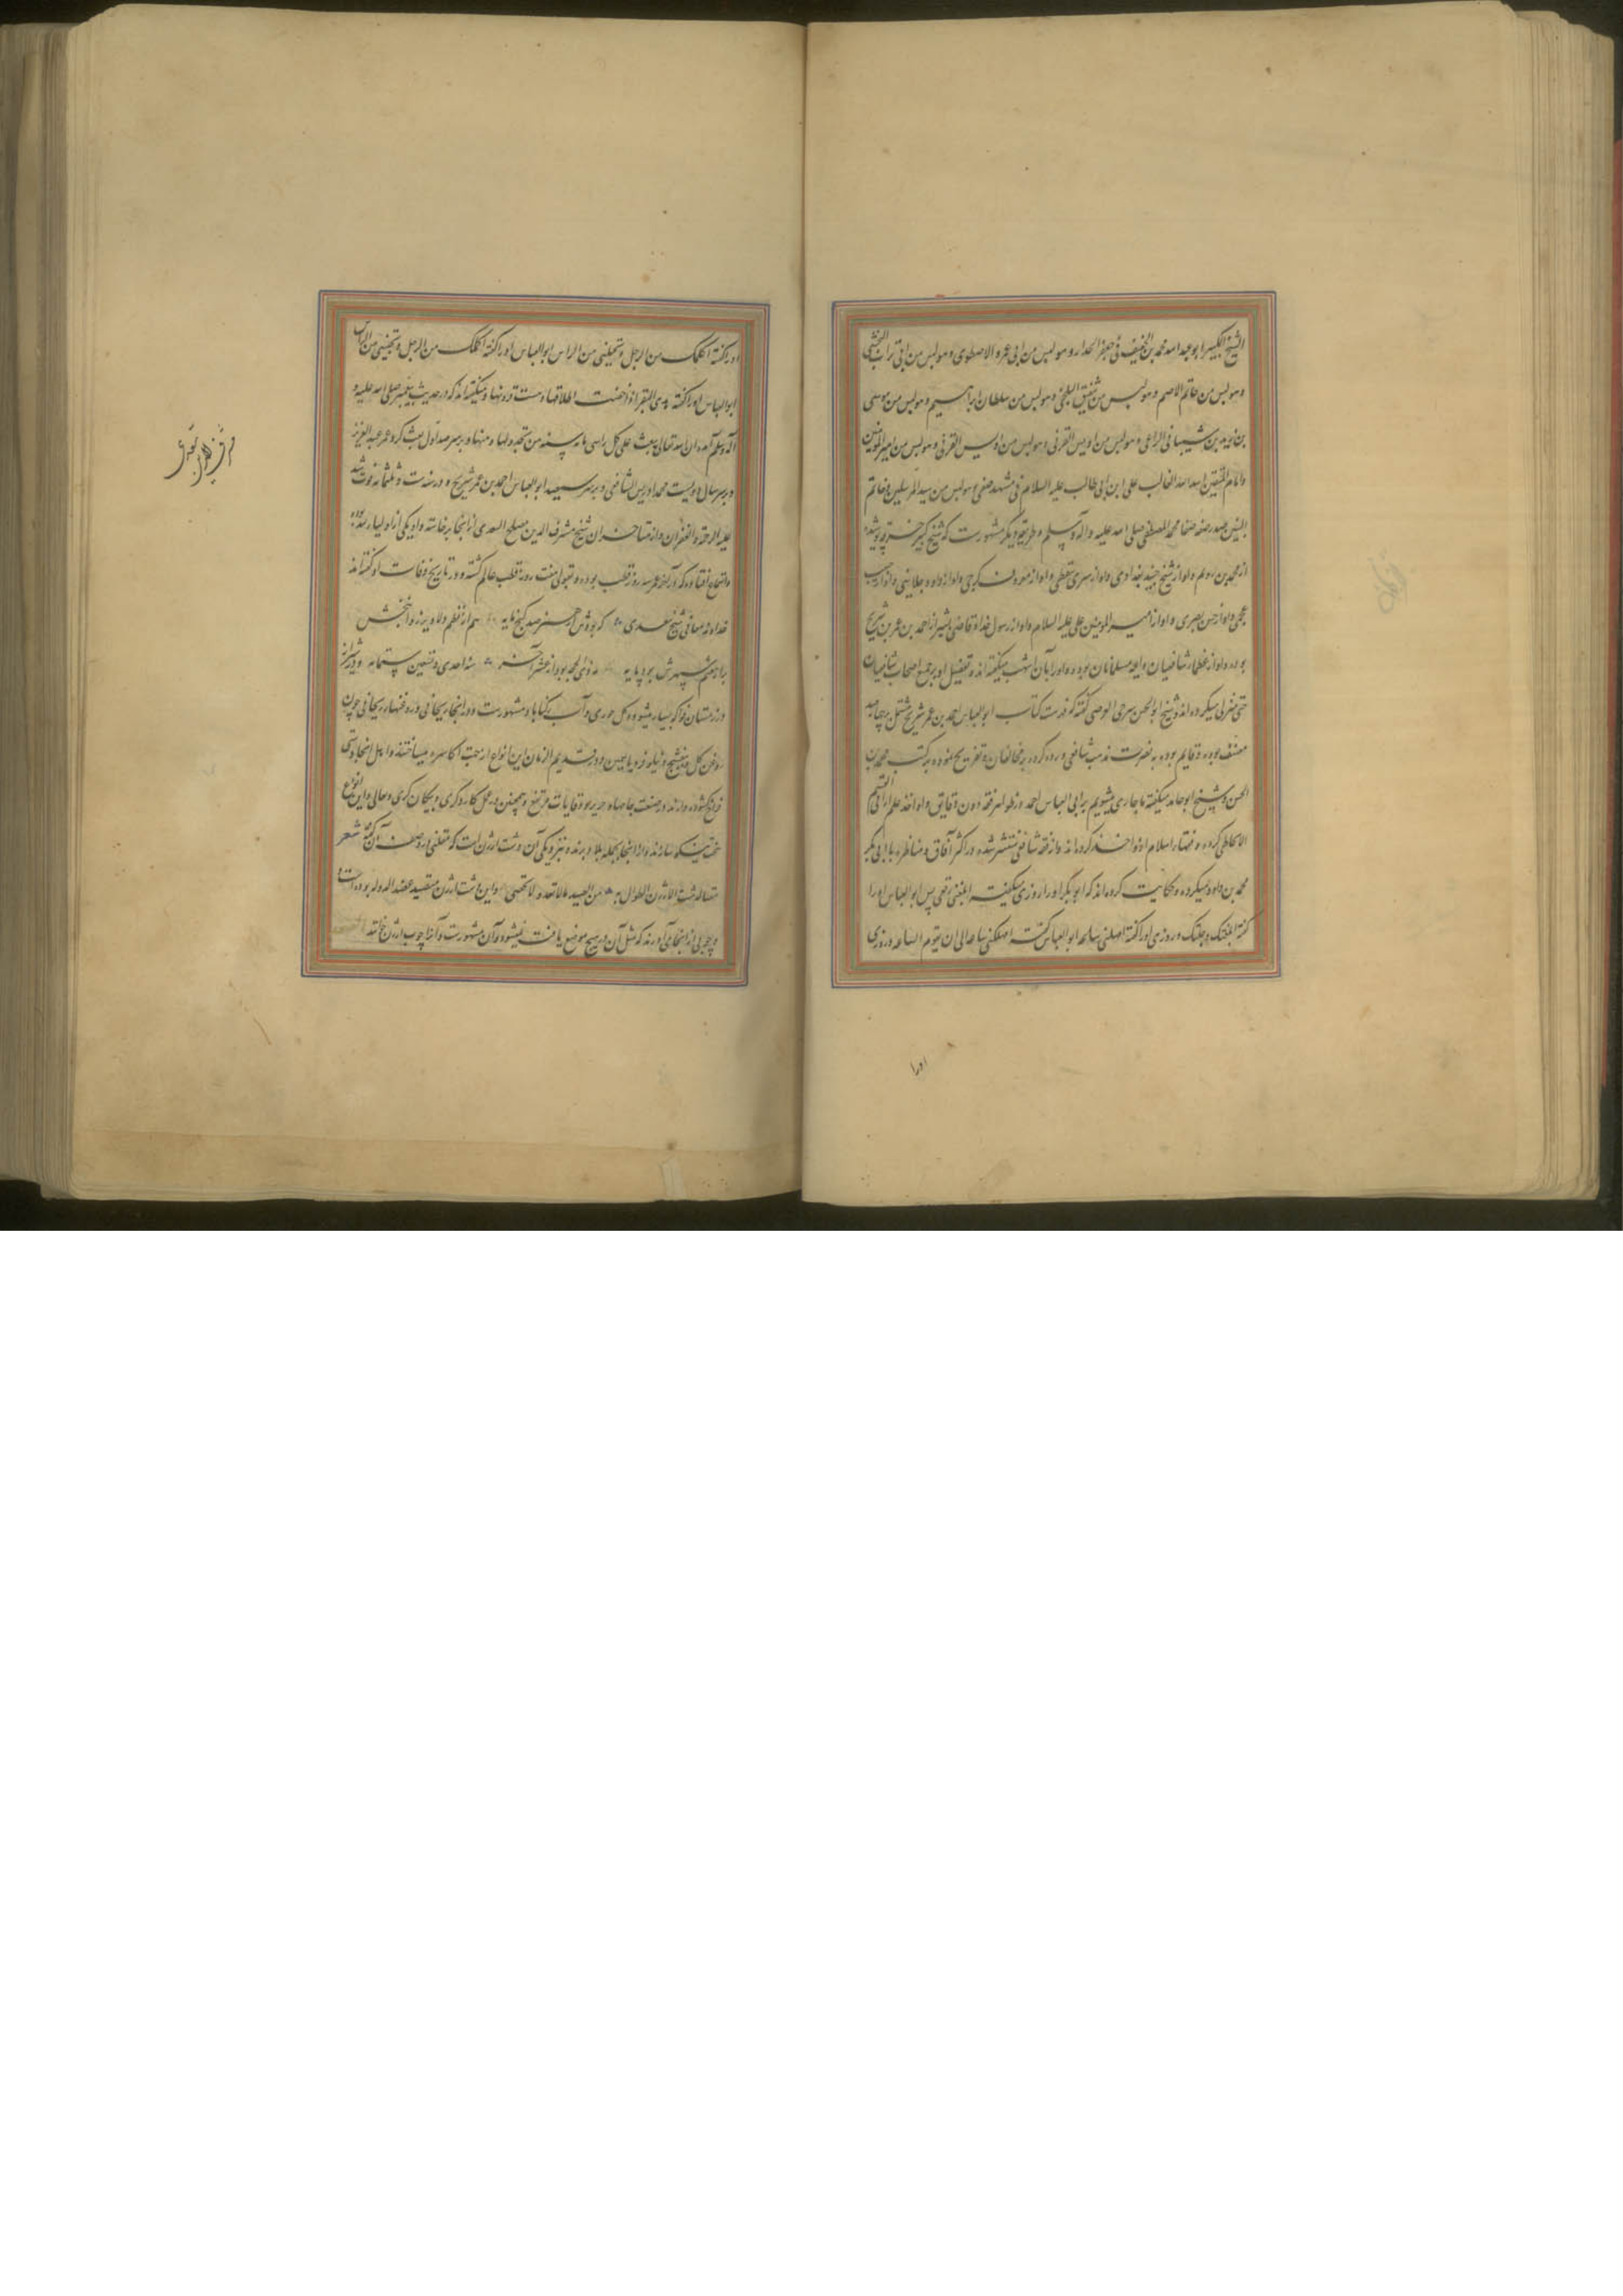 الشیخ الکبیر ابو عبد الله محمد بن الخفیف فی جعفر الحداد و هو لبس من ابی عمرو الاصطخری و هو لبس من ابی تراب النخشبی
و هو لبس من حاتم الاصم و هو لبس من شقیق البلخی و هو لبس من سلطان ابراهیم و هو لبس من موسی
بن یزید بن شیبانی الراعی و هو لبس من اویس القرنی و هو لبس من اویس القرنی و هو لبس من امیر المومنین
و امام المتقین اسد الله الغالب علی ابن ابی طالب علیه السلام فی مشهد صفین و هو لبس من سید المرسلین و خاتم
النبیین صدر صفه صفا محمد المصطفی صلی الله علیه و آله و سلم و طریقه دیگر مشهورست که شیخ کبیر خرقه پوشیده
از محمد بن رویم و او از شیخ جنید بغدادی و او از سری سقطی و او از معروف کرخی و او از داود و از حبیب
عجمی و او از حسن بصری و او از امیر المومنین علی علیه السلام و او از رسول خدا و قاضی شیراز احمد بن عمر بن شریح
بوده و او از عظماء شافعیان و ایمه مسلمانان بوده و او را باز اشهب میگفته اند و تفضیل او بر جمیع اصحاب شافعیان
حتی مزنی میکرده اند و شیخ ابو الحسن گفته که فهرست کتاب ابو العباس احمد بن عمر شریح مشتمل بر چهار صد
مصنف بوده و قایم بوده به نصرت مذهب شافعی و رد کرده بر مخالفان و تفریع نموده بر کتب محمد بن
الحسن و شیخ ابو حامد میگفته ما جاری میشویم بر ابی العباس احمد در ظواهر فقه دون دقایق و او اخذ علم از ابی القسم
الانماطی کرده و فقهاء اسلام ازو اخذ کرده اند و از فقه شافعی منتشر شده در اکثر آفاق و مناظره با ابی بکر
محمد بن داود میکرده و حکایت کرده اند که ابو بکر او را روزی میگفت ابلعنی ریقی پس ابو العباس او را
گفته ابلعتک دجلتک و روزی او را گفته امهلنی ساعه ابو العباس گفت امهلتک من ساعه الی ان یقوم الساعه و روزی
او را
او را گفته اکلمک من الرجل و تجیبنی من الراس ابو العباس او را گفته اکلمک من الرجل و تجیبنی من الراس
ابو العباس او را گفته هکذی البقر اذا حفیت اظلافها دهنت قرونها و میگفته اند که در حدیث پیغمبر صلی الله علیه و
آله و سلم آمده ان الله تعالی یبعث علی کل راس مایه سنه من یجدد لها دینها و بر سر صد اول بعث کرد عمر عبد العزیز
و بر سر سال دویست محمد ادریس الشافعی و بر سر سیصد ابو العباس احمد بن عمر شریح و در سنه ست و ثلثمائه فوت شد
علیه الرحمه و الغفران و از متاخران شیخ مشرف الدین مصلح السعدی از انجا برخاسته و او یکی از اولیاء بوده
و اتفاق افتاده که در آخر عمر سه روز قطب بوده و بقولی هفت روز قطب عالم گشته و در تاریخ وفات او گفته اند
خداوند معانی شیخ سعدی که بودش از هنر صد گنج مایه هم از نظم دلاویز روانبخش
بر از هشتم سپهرش بود پایه مه ذی الحجه بود از عشر آخر سنه احدی و تسعین و ستمایه و در شیراز
در زمستان فواکه بسیار میشود و گل جوری و آب رکناباد مشهورست و در انجا ریحانی و روغنها ریحانی چون
روغن گل و بنفشه و نیلوفر و یاسمین و در قدیم الزمان این انواع از جهت اکاسره میساختند و اهل انجا دستی
فراخ گشوده دارند در صنعت جامهاء حریر و وقایات و مقنع و همچنین در عمل کاردگری و پیکان گری و حالی و این انواع
بغایت نیکو سازند و از انجا بجمله بلاد برند و بنزدیکی آن دشت ارژن است که متنبی در وصف آن گفته شعر
سقیا لدشت الارژن الطوال به من الصید ما لا تعد و لا تحصی و این دشت ارژن متصید عضد الدوله بوده است و
و چوبی از انجا آورند که مثل آن در هیچ موضع یافت نمیشود و آن مشهورست و آنرا چوب ارژن خوانند